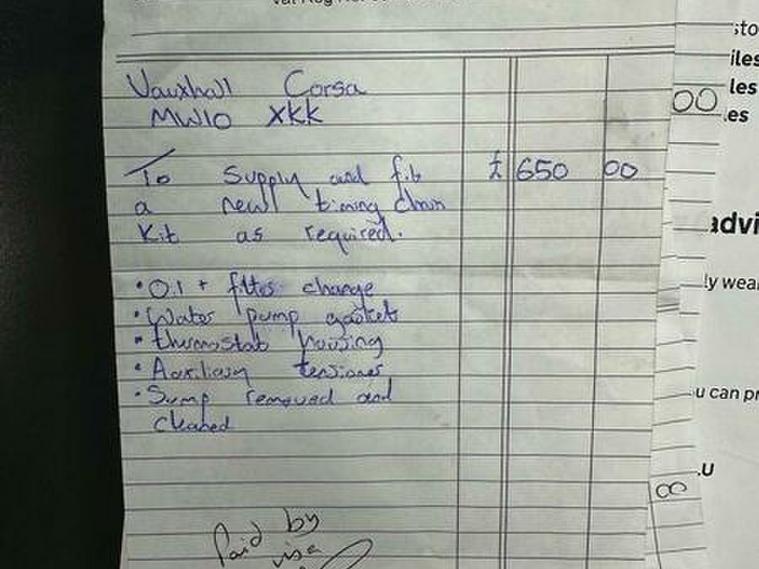 Vauxhall Corsa
MW10 XKK
To Supply and fit £ 650 00
a new timing chain
Kit as required.
• Oil + filter change
• Water pump gaskets
• thermostat housing
• Auxiliary tensioner
• Sump removed and
cleaned
Paid by
visa
00
8
iles
les
.es
advi
ly wear
u can pr
.U